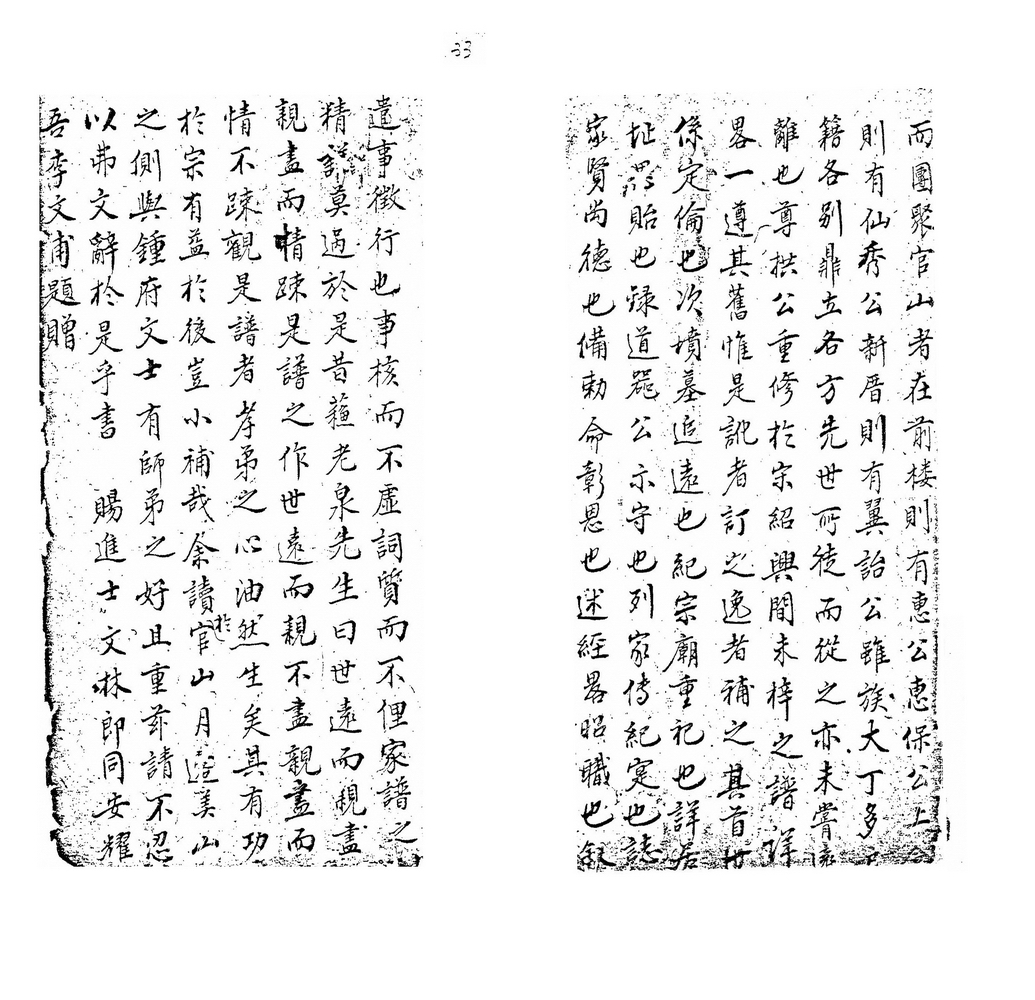 33
而團聚官山者在前楼則有惠公惠保公上
則有仙秀公新厝則有翼詒公雖族大丁多
籍各别鼎立各方先世所徙而從之亦未嘗
離也尊拱公重修於宋紹興間未梓之譜详
畧一遵其舊惟是訛者訂之逸者補之其首世
係定倫也次墳墓追遠也紀宗廟重祀也詳居
址貽也録道器公示守也列家傳紀寔也誌
家賢尚德也備勅命彰恩也述經畧昭職也叙
遺事徵行也事核而不虛詞質而不俚家譜之
精詳莫過於是昔蘓老泉先生曰世遠而親盡
親盡而情踈是譜之作世遠而親不盡親盡而
情不踈觀是譜者孝弟之心油然生矣其有功
於宗有益於後豈小補哉余讀於官山月美山
之側與鍾府文士有師弟之好且重兹請不忍
以弗文辭於是乎書 賜進士文林郎同安耀
吾李文甫題贈